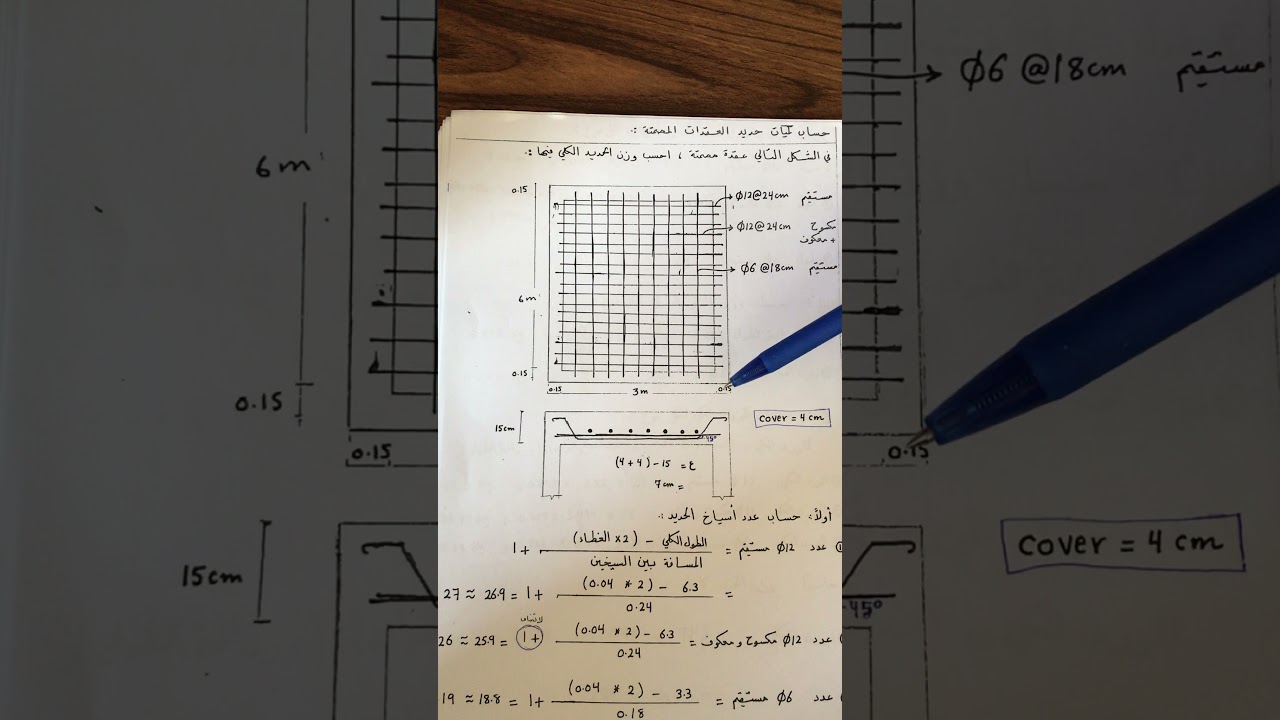 حساب كميات حديد العقدات المصمتة :.
في الشكل التالي عقدة مصمتة ، احسب وزن الحديد الكلي فيها :.
0.15
Ø12@24cm مستقيم
Ø12@24cm مكسوح
+ معكوف
Ø6 @18cm مستقيم
6m
0.15
0.15 3m 0.15
15cm
cover = 4 cm
45°
ع = 15 - (4 + 4)
= 7cm
أولاً: حساب عدد أسياخ الحديد :.
عدد Ø12 مستقيم = الطول الكلي - (2 x الغطاء) + 1
المسافة بين السيخين
= 6.3 - (2 * 0.04) + 1 = 26.9 ≈ 27
0.24
عدد Ø12 مكسوح ومعكوف = 6.3 - (2 * 0.04) (+1) = 25.9 ≈ 26
0.24
عدد Ø6 مستقيم = 3.3 - (2 * 0.04) + 1 = 18.8 ≈ 19
0.18
6m
0.15
0.15
15cm
Ø6 @18cm مستقيم
0.15
cover = 4 cm
45°